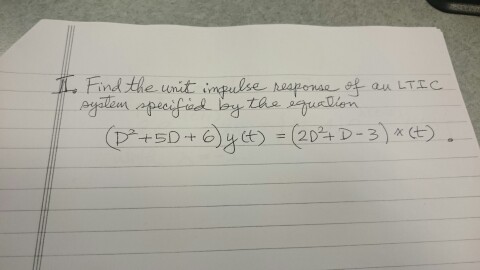 II. Find the unit impulse response of an LTIC
system specified by the equation
(D²+5D+6)y(t) = (2D²+D-3)x(t).